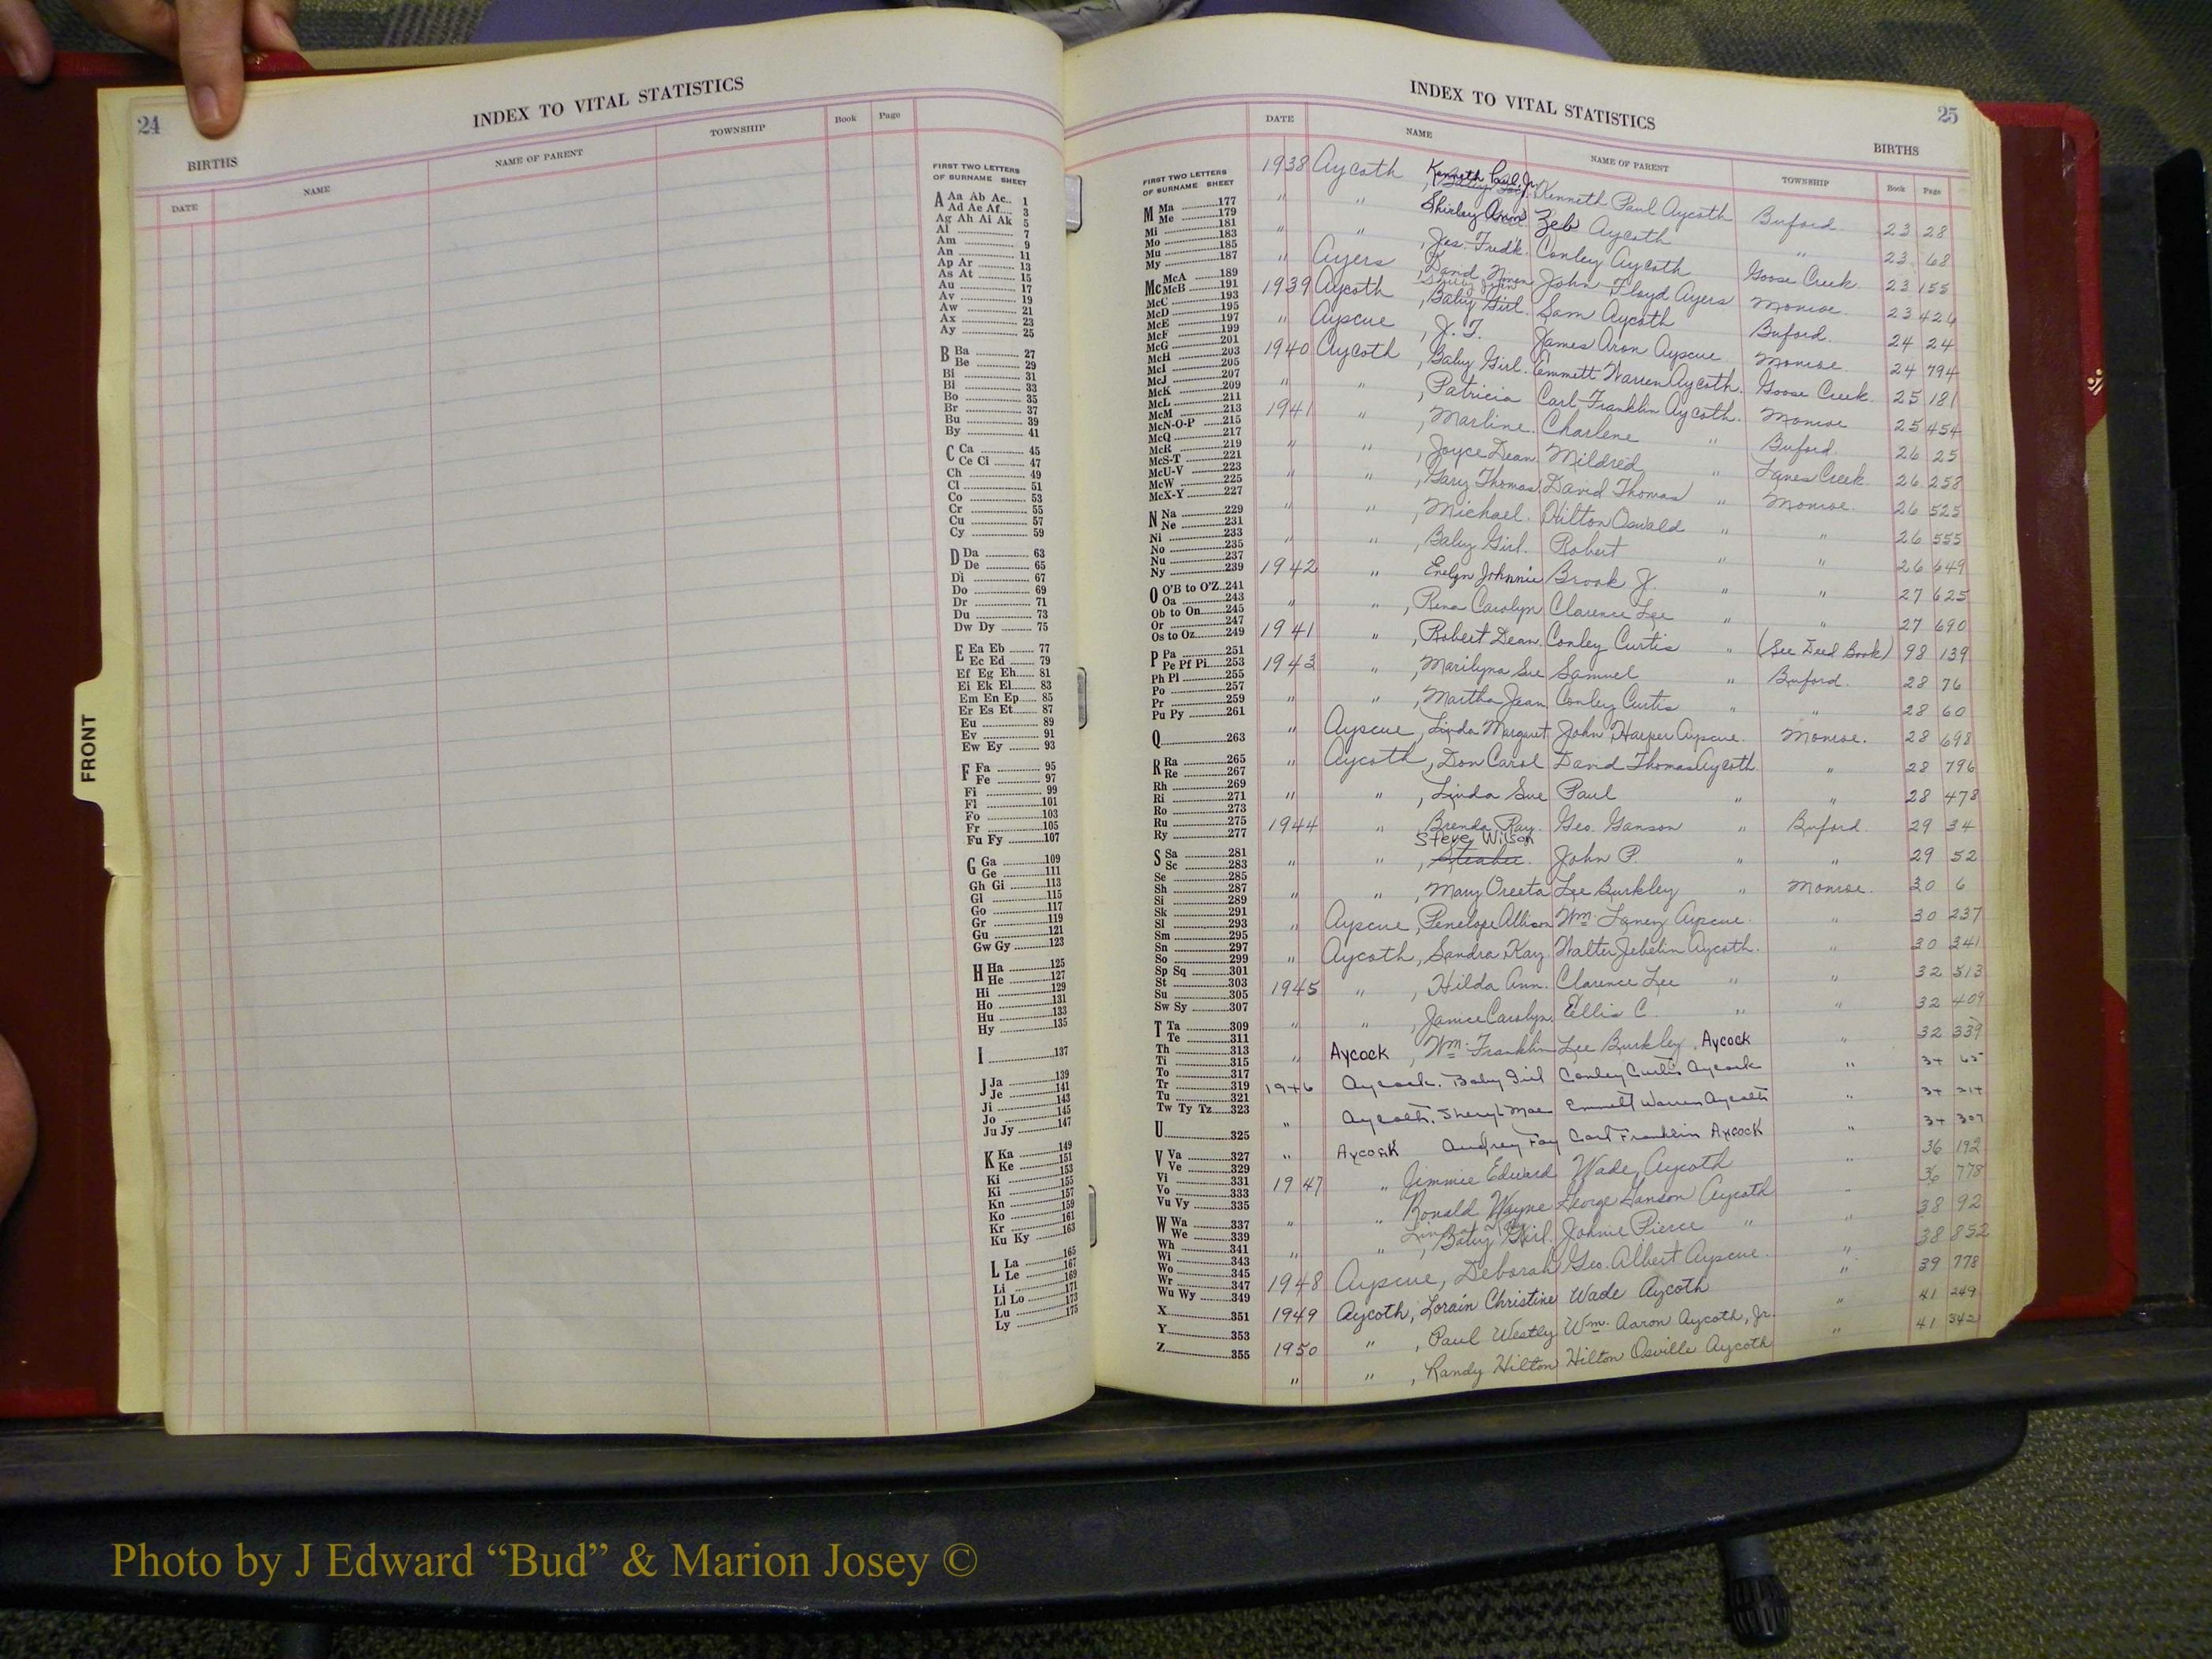 24
INDEX TO VITAL STATISTICS
BIRTHS
DATE NAME NAME OF PARENT TOWNSHIP Book Page
FIRST TWO LETTERS
OF SURNAME SHEET
A Aa Ab Ac.. 1
Ad Ae Af.... 3
Ag Ah Ai Ak 5
Al 7
Am 9
An 11
Ap Ar 13
As At 15
Au 17
Av 19
Aw 21
Ax 23
Ay 25
B Ba 27
Be 29
Bi 31
Bl 33
Bo 35
Br 37
Bu 39
By 41
C Ca 45
Ce Ci 47
Ch 49
Cl 51
Co 53
Cr 55
Cu 57
Cy 59
D Da 63
De 65
Di 67
Do 69
Dr 71
Du 73
Dw Dy 75
E Ea Eb 77
Ec Ed 79
Ef Eg Eh 81
Ei Ek El 83
Em En Ep 85
Er Es Et 87
Eu 89
Ev 91
Ew Ey 93
F Fa 95
Fe 97
Fi 99
Fl 101
Fo 103
Fr 105
Fu Fy 107
G Ga 109
Ge 111
Gh Gi 113
Gl 115
Go 117
Gr 119
Gu 121
Gw Gy 123
H Ha 125
He 127
Hi 129
Ho 131
Hu 133
Hy 135
I 137
J Ja 139
Je 141
Ji 143
Jo 145
Ju Jy 147
K Ka 149
Ke 151
Ki 153
Kl 155
Kn 157
Ko 159
Kr 161
Ku Ky 163
L La 165
Le 167
Li 169
Ll Lo 171
Lu 173
Ly 175
FRONT
INDEX TO VITAL STATISTICS
25
BIRTHS
DATE NAME NAME OF PARENT TOWNSHIP Book Page
FIRST TWO LETTERS
OF SURNAME SHEET
M Ma 177
Me 179
Mi 181
Mo 183
Mu 185
My 187
Mc McA 189
McB 191
McC 193
McD 195
McE 197
McF 199
McG 201
McH 203
McI 205
McJ 207
McK 209
McL 211
McM 213
McN-O-P 215
McQ 217
McR 219
McS-T 221
McU-V 223
McW 225
McX-Y 227
N Na 229
Ne 231
Ni 233
No 235
Nu 237
Ny 239
O O'B to O'Z..241
Oa 243
Ob to On 245
Or 247
Os to Oz 249
P Pa 251
Pe Pf Pi 253
Ph Pl 255
Po 257
Pr 259
Pu Py 261
Q 263
R Ra 265
Re 267
Rh 269
Ri 271
Ro 273
Ru 275
Ry 277
S Sa 281
Sc 283
Se 285
Sh 287
Si 289
Sk 291
Sl 293
Sm 295
Sn 297
So 299
Sp Sq 301
St 303
Su 305
Sw Sy 307
T Ta 309
Te 311
Th 313
Ti 315
To 317
Tr 319
Tu 321
Tw Ty Tz 323
U 325
V Va 327
Ve 329
Vi 331
Vo 333
Vu Vy 335
W Wa 337
We 339
Wh 341
Wi 343
Wo 345
Wr 347
Wu Wy 349
X 351
Y 353
Z 355
1938 Aycoth Kenneth Paul, Jr. Kenneth Paul Aycoth Buford 23 28
" " Shirley Ann Zeb Aycoth " 23 68
" " , Jas. Fred'k. Conley Aycoth Goose Creek 23 155
" Ayers , David John Floyd Ayers Monroe 23 426
1939 Aycoth , Baby Girl. Sam Aycoth Buford. 24 24
" Ayscue , J. T. James Aron Ayscue Monroe 24 794
1940 Aycoth , Baby Girl. Emmett Warren Aycoth. Goose Creek 25 181
" " , Patricia Carl Franklin Aycoth. Monroe 25 454
1941 " , Marline. Charlene " Buford. 26 25
" " , Joyce Dean. Mildred " Lanes Creek 26 258
" " , Gary Thomas David Thomas " Monroe. 26 525
" " , Michael. Hilton Oswald " " 26 555
" " , Baby Girl. Robert " " 26 649
1942 " Evelyn Johnnie Brook J. " " 27 625
" " , Rena Carolyn Clarence Lee " " 27 690
1941 " , Robert Dean. Conley Curtis " (See Deed Book) 98 139
1943 " , Marilyna Sue Samuel " Buford. 28 76
" " , Martha Jean Conley Curtis " " 28 60
" Ayscue , Linda Margaret John Harper Ayscue. Monroe. 28 698
" Aycoth , Don Carol David Thomas Aycoth. " 28 796
" " , Linda Sue Paul " " 28 478
1944 " , Brenda Ray. Geo. Ganson " Buford 29 34
Steve Wilson
" " , John P. " " 29 52
" " , Mary Oreeta Lee Burkley " Monroe. 30 6
" Ayscue , Penelope Allison Wm. Laney Ayscue. " 30 237
" Aycoth , Sandra Kay. Walter Aycoth. " 30 341
1945 " , Hilda Ann. Clarence Lee " " 32 513
" " , Janice Carolyn. Ellis C. " " 32 409
" Aycock , Wm. Franklin Lee Burkley Aycock " 32 339
1946 Aycock. Baby Girl Conley Curtis Aycock " 34 65
" Aycoth. Sheryl Mae Emmett Warren Aycoth " 34 214
" Aycock Audrey Fay Carl Franklin Aycock " 34 307
1947 " Jimmie Edward Wade Aycoth " 36 192
" " Ronald Wayne George Ganson Aycoth " 36 778
" " , Baby Girl. Johnie Pierce " " 38 92
1948 Ayscue, Deborah Geo. Albert Ayscue. " 38 852
1949 Aycoth, Lorain Christine Wade Aycoth " 39 778
1950 " , Paul Westly Wm. Aaron Aycoth, Jr. " 41 249
" " , Randy Hilton Hilton Osville Aycoth " 41 342
Photo by J Edward “Bud” & Marion Josey ©